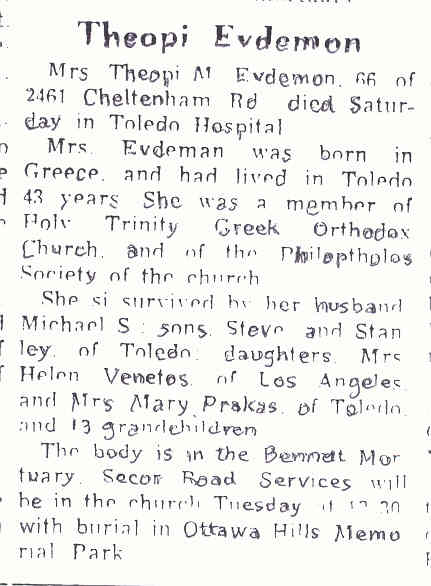 Theopi Evdemon
Mrs Theopi M Evdemon, 66 of
2461 Cheltenham Rd died Satur-
day in Toledo Hospital
Mrs. Evdeman was born in
Greece, and had lived in Toledo
43 years She was a member of
Holy Trinity Greek Orthodox
Church, and of the Philoptholos
Society of the church
She si survived by her husband
Michael S ; sons, Steve and Stan
ley, of Toledo; daughters, Mrs
Helen Venetos, of Los Angeles,
and Mrs Mary Prakas, of Toledo,
and 13 grandchildren
The body is in the Bennett Mor
tuary, Secor Road Services will
be in the church Tuesday at
with burial in Ottawa Hills Memo
rial Park